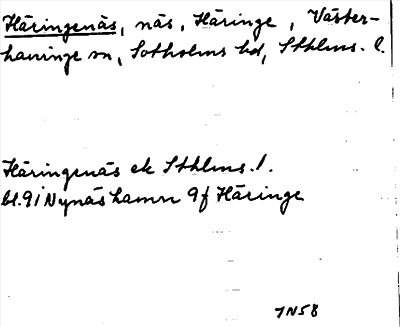 Häringenäs, näs, Häringe, Väster-
haninge sn, Sotholms hd, Sthlms. l.
Häringenäs ek Sthlms. l.
bl. 91 Nynäshamn 9f Häringe
JN58